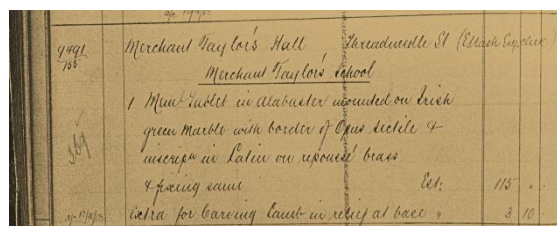 9491
155
Merchant Taylor's Hall Threadneedle St
Merchant Taylor's School
1 Meml Tablet in Alabaster mounted on Irish
green Marble with border of Opus Sectile &
inscripn in Latin on repoussé brass
& fixing same Est: 115 " "
Extra for Carving Lamb in relief at base " 3 10 -